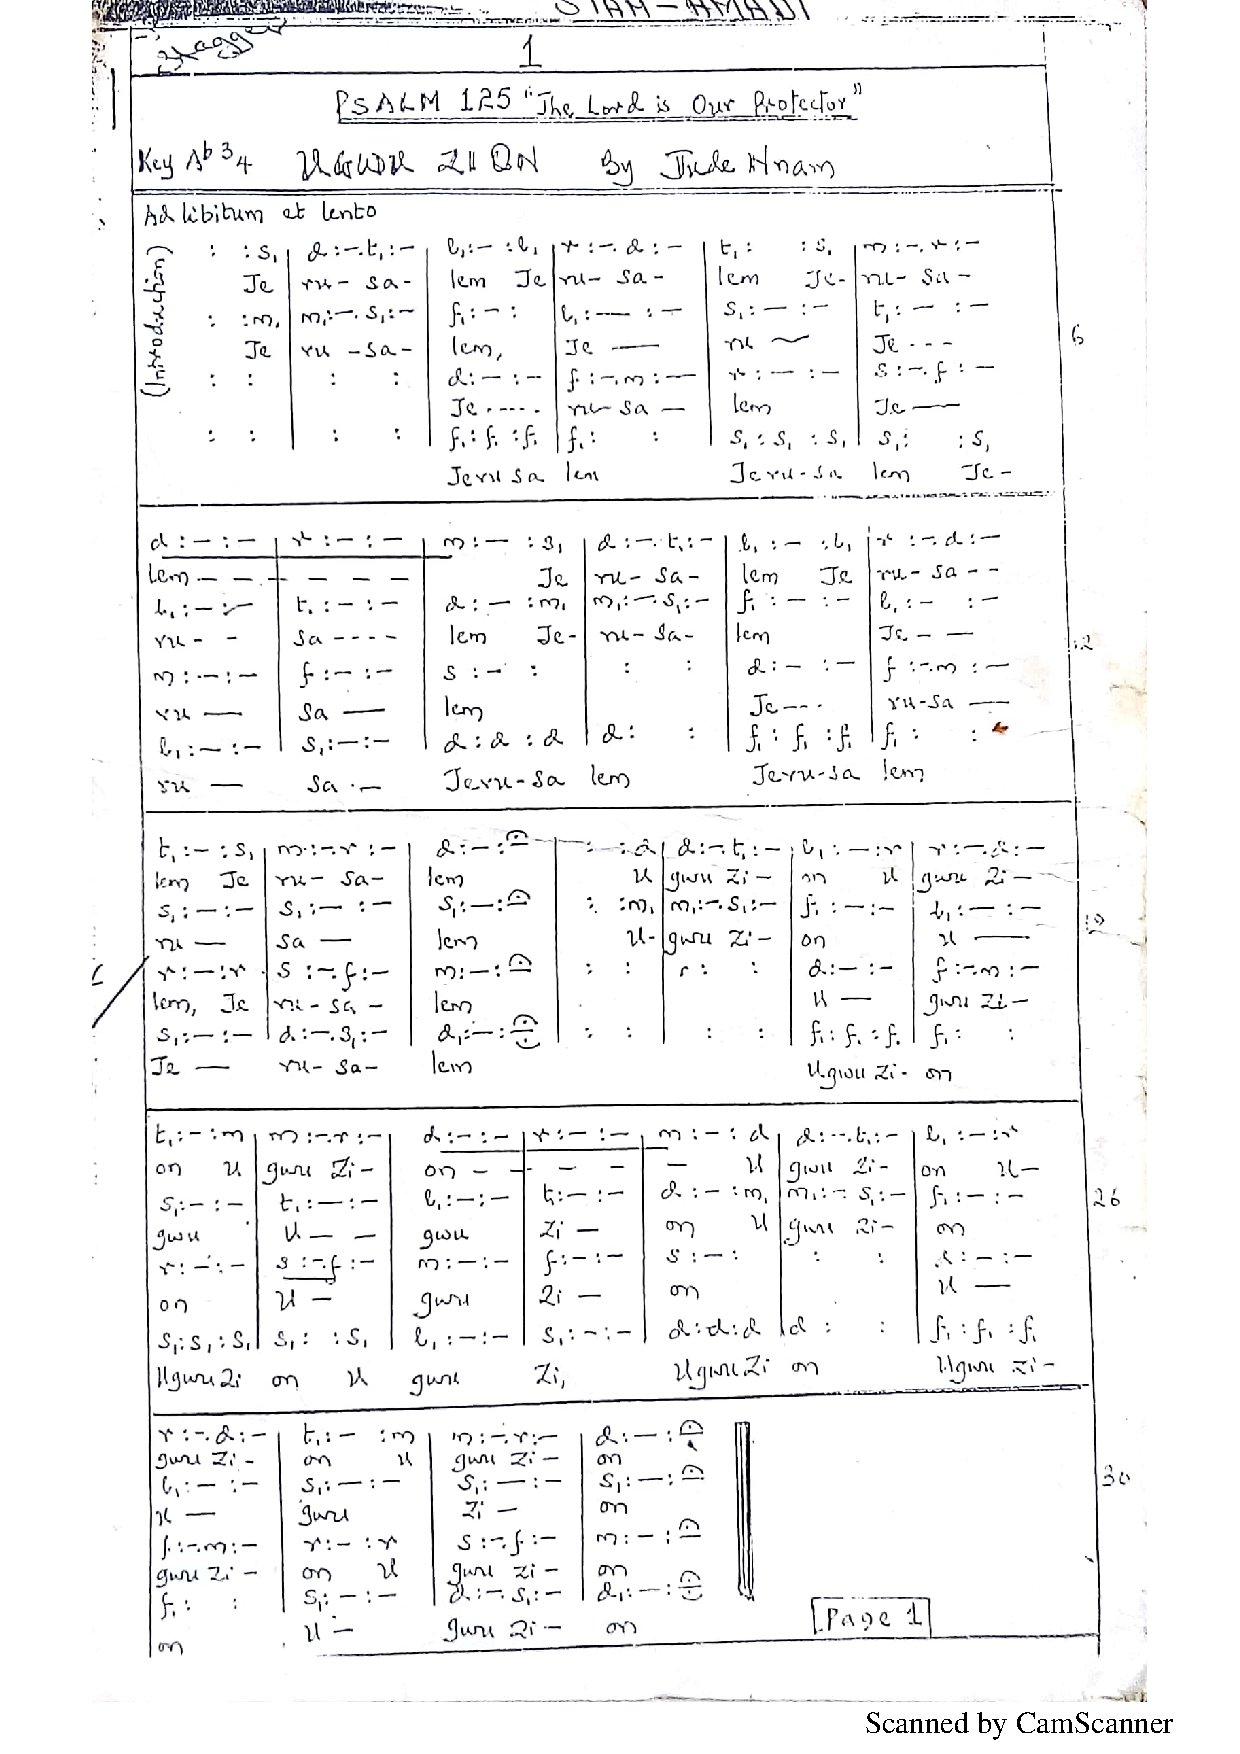 1
PSALM 125 "The Lord is Our Protector"
Key Ab 3/4 UGWU ZION By Jude Nnam
Ad libitum et lento
(Introduction)
: :s₁ | d:-.t₁:- | l₁:- :l₁ | r:-.d:- | t₁: :s₁ | m:-.r:-
Je | ru- sa- | lem Je | ru- sa- | lem Je- | ru- sa-
: :m₁ | m₁:-.s₁:- | f₁:- : | l₁:- :- | s₁:- :- | t₁:- :-
Je | ru -sa- | lem, | Je — | ru ~ | Je ---
6
: : | : : | d:- :- | f:-.m:- | r:- :- | s:-.f:-
Je .---- | ru- sa - | lem | Je —
: : | : : | f₁:f₁:f₁ | f₁: : | s₁:s₁:s₁ | s₁: :s₁
Jeru sa lem Jeru-sa lem Je-
d:-:- | r:-:- | m:- :s₁ | d:-.t₁:- | l₁:- :l₁ | r:-.d:-
lem - - - - - - Je | ru- sa- | lem Je | ru- sa - -
l₁:-:- | t₁:-:- | d:- :m₁ | m₁:-.s₁:- | f₁:- :- | l₁:- :-
ru - - | sa ---- | lem Je- | ru- sa- | lem | Je - -
12
m:-:- | f:-:- | s:- : | : : | d:- :- | f:-.m:-
ru — | sa — | lem | Je --- | ru-sa —
l₁:-:- | s₁:-:- | d:d:d | d: : | f₁:f₁:f₁ | f₁: :
ru — sa - Jeru-sa lem Jeru-sa lem
t₁:-:s₁ | m:-.r:- | d:-:𝄐 | : :d | d:-.t₁:- | l₁:-:r | r:-.d:-
lem Je | ru- sa- | lem | U | gwu Zi- | on U | gwu Zi-
s₁:-:- | s₁:- :- | s₁:-:𝄐 | : :m₁ | m₁:-.s₁:- | f₁:-:- | l₁:-:-
19
ru — | sa — | lem | U- | gwu Zi- | on | U —
r:-:r | s:-.f:- | m:-:𝄐 | : : | : : | d:-:- | f:-.m:-
lem, Je | ru-sa - | lem | U — | gwu Zi-
s₁:-:- | d:-.s₁:- | d₁:-:𝄐 | : : | : : | f₁:f₁:f₁ | f₁: :
Je — ru- sa- lem Ugwu Zi- on
t₁:-:m | m:-.r:- | d:-:- | r:-:- | m:-:d | d:-.t₁:- | l₁:-:r
on U | gwu Zi- | on - - - - - U | gwu Zi- | on U-
s₁:-:- | t₁:-:- | l₁:-:- | t₁:-:- | d:-:m₁ | m₁:-.s₁:- | f₁:-:-
26
gwu | U - - | gwu | Zi - | on U | gwu Zi- | on
r:-:- | s:-.f:- | m:-:- | f:-:- | s:-: | : : | d:-:-
on | U - | gwu | Zi - | on | U —
s₁:s₁:s₁ | s₁: :s₁ | l₁:-:- | s₁:-:- | d:d:d | d: : | f₁:f₁:f₁
Ugwu Zi on U gwu Zi, Ugwu Zi on Ugwu Zi-
r:-.d:- | t₁:- :m | m:-.r:- | d:-:𝄐
gwu Zi- | on U | gwu Zi- | on
l₁:- :- | s₁:-:- | s₁:-:- | s₁:-:𝄐
30
U — | gwu | Zi - | on
f:-.m:- | r:-:r | s:-.f:- | m:-:𝄐
gwu Zi- | on U | gwu Zi- | on
f₁: : | s₁:-:- | d:-.s₁:- | d₁:-:𝄐
on U - gwu Zi- on
Page 1
Scanned by CamScanner